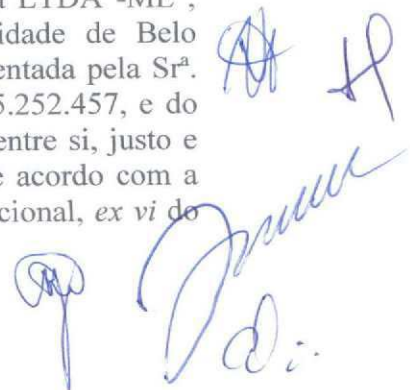 LTDA -ME ,
idade de Belo
entada pela Srª.
5.252.457, e do
entre si, justo e
e acordo com a
cional, ex vi do